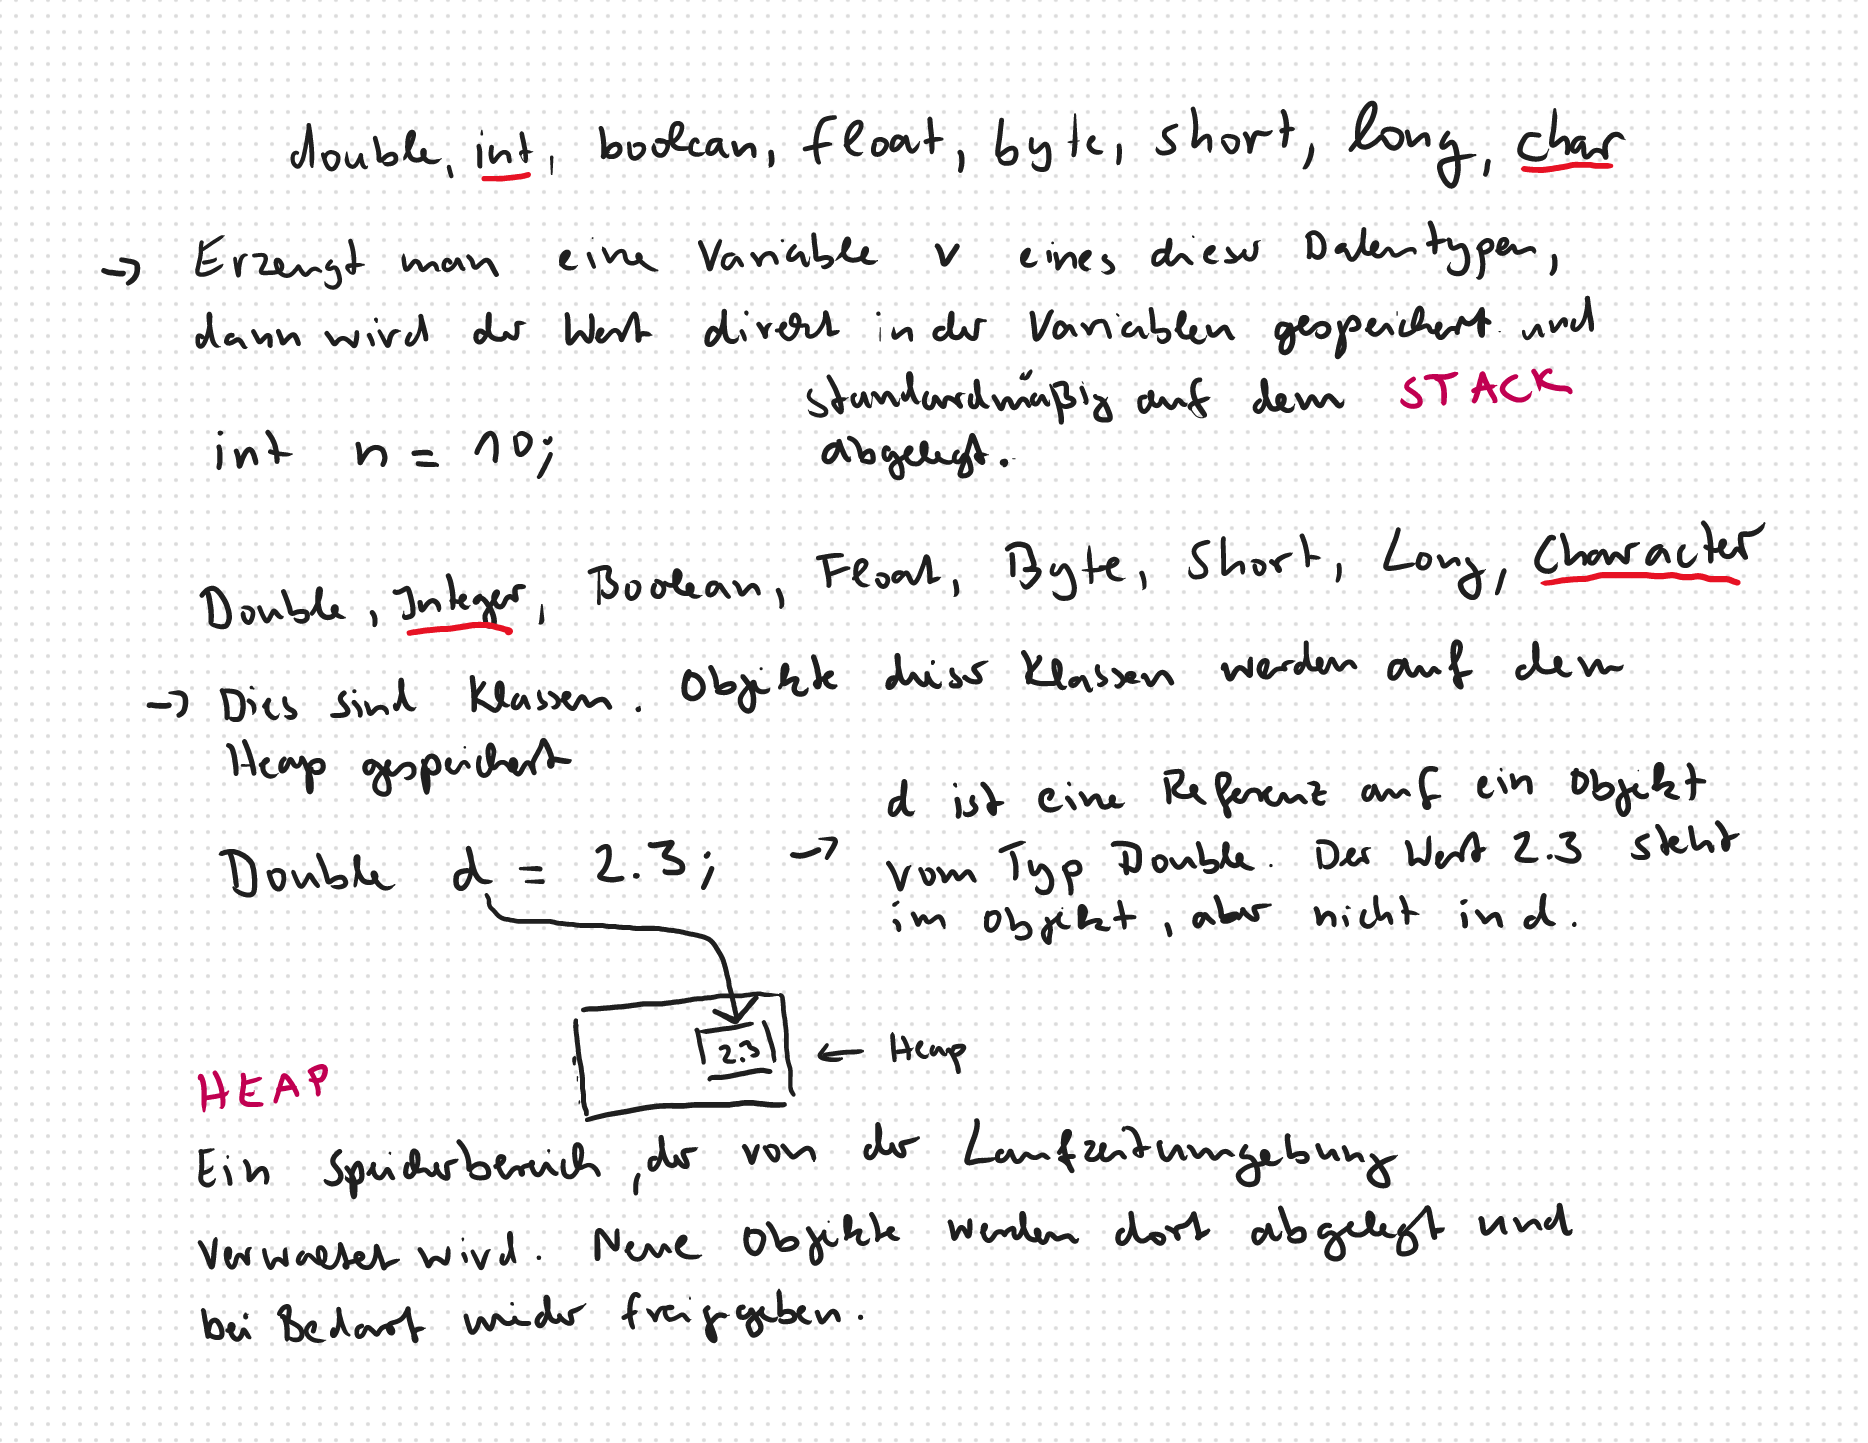 double, int, boolean, float, byte, short, long, char
→ Erzeugt man eine Variable v eines dieser Datentypen,
dann wird der Wert direkt in der Variablen gespeichert und
standardmäßig auf dem STACK
abgelegt.
int n = 10;
Double, Integer, Boolean, Float, Byte, Short, Long, Character
→ Dies sind Klassen. Objekte dieser Klassen werden auf dem
Heap gespeichert
Double d = 2.3; → d ist eine Referenz auf ein Objekt
vom Typ Double. Der Wert 2.3 steht
im Objekt, aber nicht in d.
2.3 ← Heap
HEAP
Ein Speicherbereich, der von der Laufzeitumgebung
verwaltet wird. Neue Objekte werden dort abgelegt und
bei Bedarf wieder freigegeben.